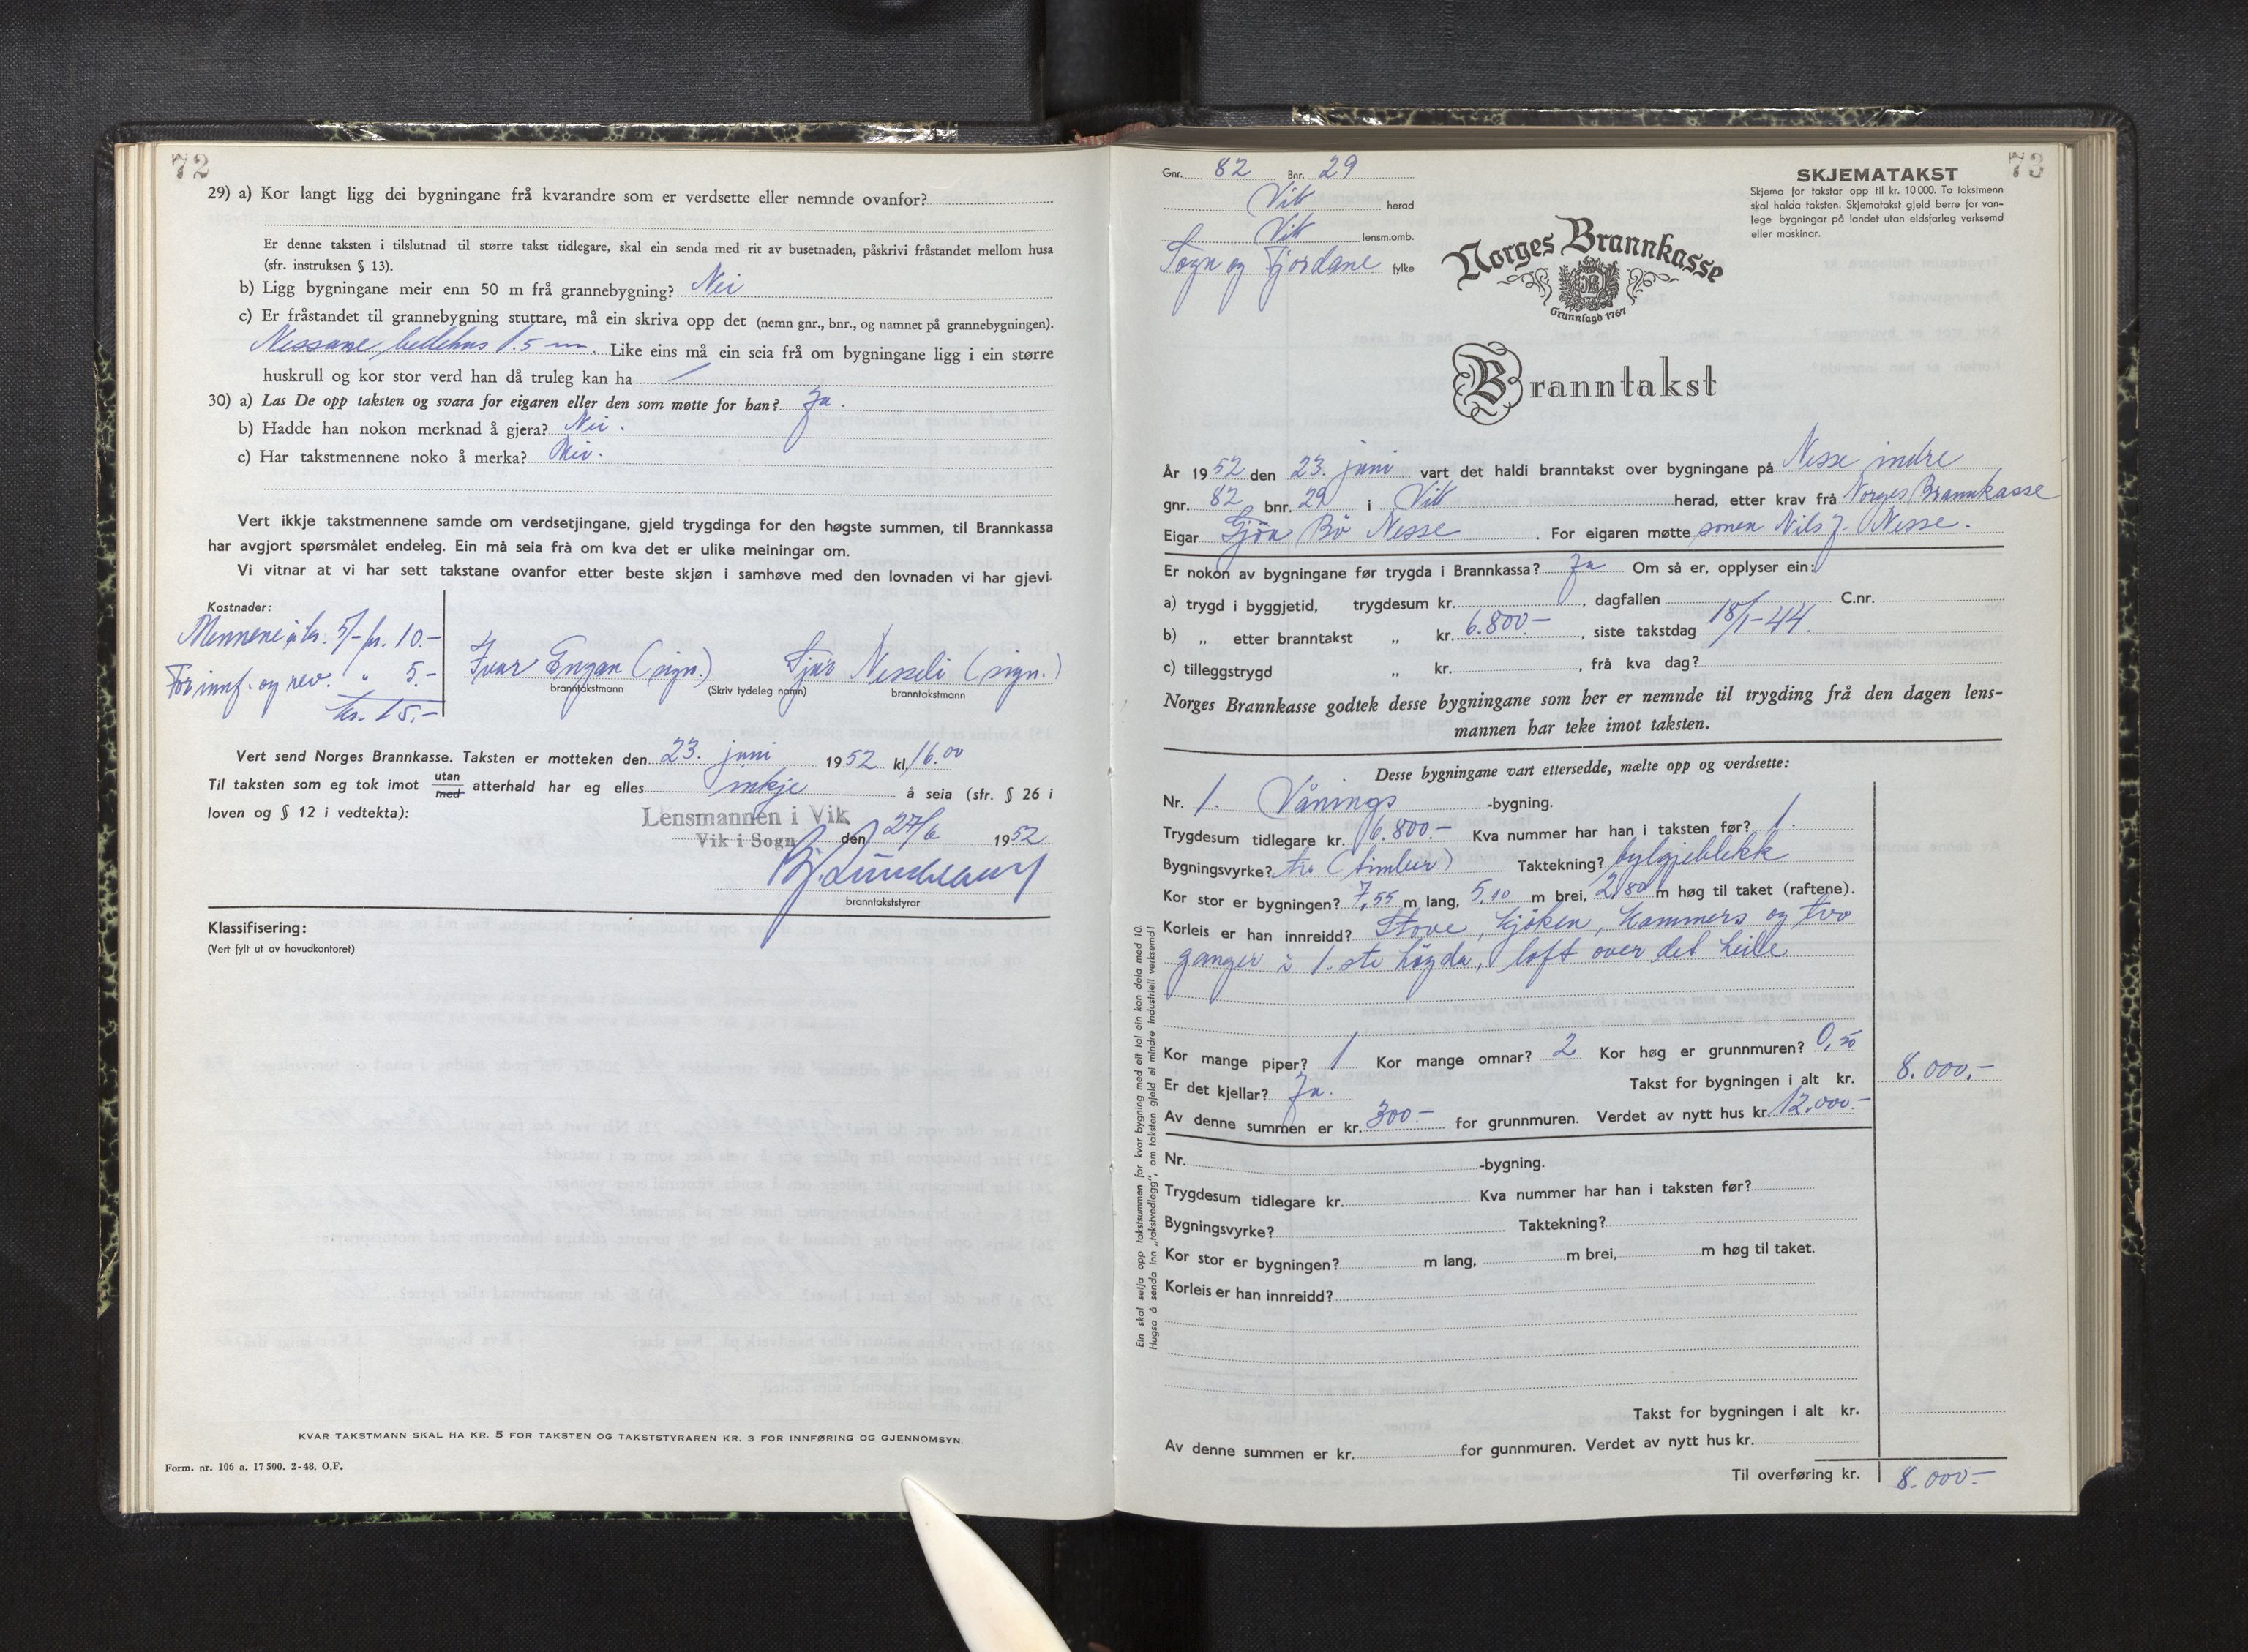 72
29) a) Kor langt ligg dei bygningane frå kvarandre som er verdsette eller nemnde ovanfor?
Er denne taksten i tilslutnad til større takst tidlegare, skal ein senda med rit av busetnaden, påskrivi fråstandet mellom husa
(sfr. instruksen § 13).
b) Ligg bygningane meir enn 50 m frå grannebygning? Nei
c) Er fråstandet til grannebygning stuttare, må ein skriva opp det (nemn gnr., bnr., og namnet på grannebygningen).
Nessane bedehus 1.5 m. Like eins må ein seia frå om bygningane ligg i ein større
huskrull og kor stor verd han då truleg kan ha /
30) a) Las De opp taksten og svara for eigaren eller den som møtte for han? Ja.
b) Hadde han nokon merknad å gjera? Nei.
c) Har takstmennene noko å merka? Nei.
Vert ikkje takstmennene samde om verdsetjingane, gjeld trygdinga for den høgste summen, til Brannkassa
har avgjort spørsmålet endeleg. Ein må seia frå om kva det er ulike meiningar om.
Vi vitnar at vi har sett takstane ovanfor etter beste skjøn i samhøve med den lovnaden vi har gjevi.
Kostnader:
Mennene à kr. 5/- kr. 10.-
For innf. og rev. " 5.-
kr. 15.-
Ivar Engan (sign.) Sjur Nesseli (sign.)
branntakstmann (Skriv tydeleg namn) branntakstmann
Vert send Norges Brannkasse. Taksten er motteken den 23. juni 1952 kl. 16.00
Til taksten som eg tok imot utan med atterhald har eg elles inkje å seia (sfr. § 26 i
loven og § 12 i vedtekta):
Lensmannen i Vik
Vik i Sogn den 27/6 1952
branntakststyrar
Klassifisering:
(Vert fylt ut av hovudkontoret)
KVAR TAKSTMANN SKAL HA KR. 5 FOR TAKSTEN OG TAKSTSTYRAREN KR. 3 FOR INNFØRING OG GJENNOMSYN.
Form. nr. 106 a. 17 500. 2-48. O.F.
73
Gnr. 82 Bnr. 29
Vik herad
Vik lensm.omb.
Sogn og Fjordane fylke
SKJEMATAKST
Skjema for takstar opp til kr. 10 000. To takstmenn
skal halda taksten. Skjematakst gjeld berre for van-
lege bygningar på landet utan eldsfarleg verksemd
eller maskinar.
Norges Brannkasse
Grunnlagd 1767
Branntakst
År 1952 den 23. juni vart det haldi branntakst over bygningane på Nesse indre
gnr. 82 bnr. 29 i Vik herad, etter krav frå Norges Brannkasse
Eigar Gjöa Bö Nesse. For eigaren møtte sonen Nils J. Nesse.
Er nokon av bygningane før trygda i Brannkassa? Ja Om så er, opplyser ein:
a) trygd i byggjetid, trygdesum kr. , dagfallen C.nr.
b) „ etter branntakst „ kr. 6.800.- , siste takstdag 18/1-44.
c) tilleggstrygd „ kr. , frå kva dag?
Norges Brannkasse godtek desse bygningane som her er nemnde til trygding frå den dagen lens-
mannen har teke imot taksten.
Desse bygningane vart ettersedde, mælte opp og verdsette:
Nr. 1. Vånings -bygning.
Trygdesum tidlegare kr. 6.800.- Kva nummer har han i taksten før? 1.
Bygningsvyrke? tre (timber) Taktekning? bylgjeblekk
Kor stor er bygningen? 7,55 m lang, 5,10 m brei, 2,80 m høg til taket (raftene).
Korleis er han innreidd? Stove, kjöken, kammers og tvo
ganger i 1.ste högda, loft over det heile
Kor mange piper? 1 Kor mange omnar? 2 Kor høg er grunnmuren? 0,50
Er det kjellar? Ja. Takst for bygningen i alt kr. 8.000.-
Av denne summen er kr. 300.- for grunnmuren. Verdet av nytt hus kr. 12.000.-
Nr. -bygning.
Trygdesum tidlegare kr. Kva nummer har han i taksten før?
Bygningsvyrke? Taktekning?
Kor stor er bygningen? m lang, m brei, m høg til taket.
Korleis er han innreidd?
Takst for bygningen i alt kr.
Av denne summen er kr. for gunnmuren. Verdet av nytt hus kr.
Til overføring kr. 8.000.-
Ein skal setja opp takstsummen for kvar bygning med eit tal ein kan dela med 10.
Hugsa å senda inn „takstvedlegg", om taksten gjeld ei mindre industriell verksemd!